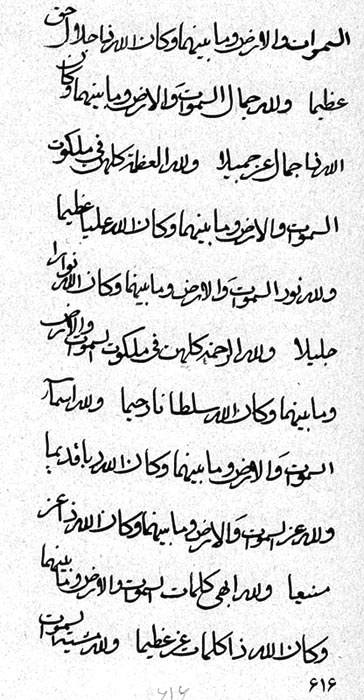 السموات والارض وما بينهما وكان الله ذا جلال حق
عظيما ولله جمال السموات والارض وما بينهما وكان
الله ذا جمال عز جميلا ولله العظمة كلهن في ملكوت
السموات والارض وما بينهما وكان الله عليا عظيما
ولله نور السموات والارض وما بينهما وكان الله نوارا
جليلا ولله الرحمة كلهن في ملكوت السموات والارض
وما بينهما وكان الله سلطانا رحيما ولله اسماء
السموات والارض وما بينهما وكان الله
ولله عز السموات والارض وما بينهما وكان الله ذا عز
منيعا ولله ابهى كلمات السموات والارض وما بينهما
وكان الله ذا كلمات عز عظيما ولله مشية السموات
۶۱۶
۶۱۶